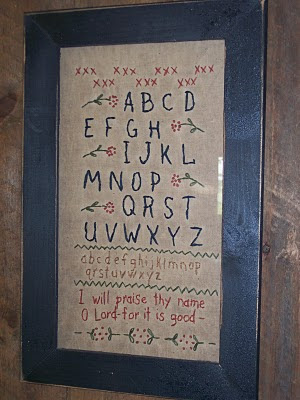 xxx xxx xxx xxx
xxx xxx xxx
A B C D
E F G H
I J K L
M N O P
Q R S T
U V W X Y Z
a b c d e f g h i j k l m n o p
q r s t u v w x y z
I will praise thy name
O Lord-for it is good-